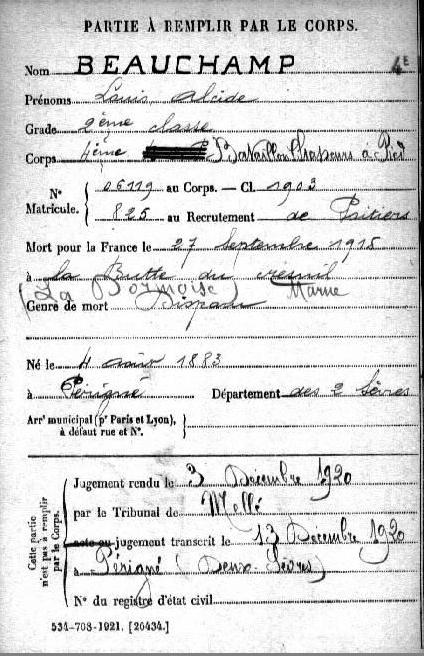 PARTIE À REMPLIR PAR LE CORPS.
Nom BEAUCHAMP 4E
Prénoms Louis Alcide
Grade 2ème classe
Corps 4ème Bataillon Chasseurs à Pied
N° Matricule. { 06119 au Corps. — Cl. 1903
825 au Recrutement de Poitiers
Mort pour la France le 27 Septembre 1915
à la Butte du Mesnil
(La Bormoise) Marne
Genre de mort Disparu
Né le 4 1883
à Périgné Département des 2 Sèvres
Arr' municipal (p' Paris et Lyon), à défaut rue et N°. }
Cette partie n'est pas à remplir par le Corps.
Jugement rendu le 3 Décembre 1920
par le Tribunal de Melle
acte ou jugement transcrit le 13 Décembre 1920
à Périgné (Deux-Sèvres)
N° du registre d'état civil
534-708-1921. [26434.]